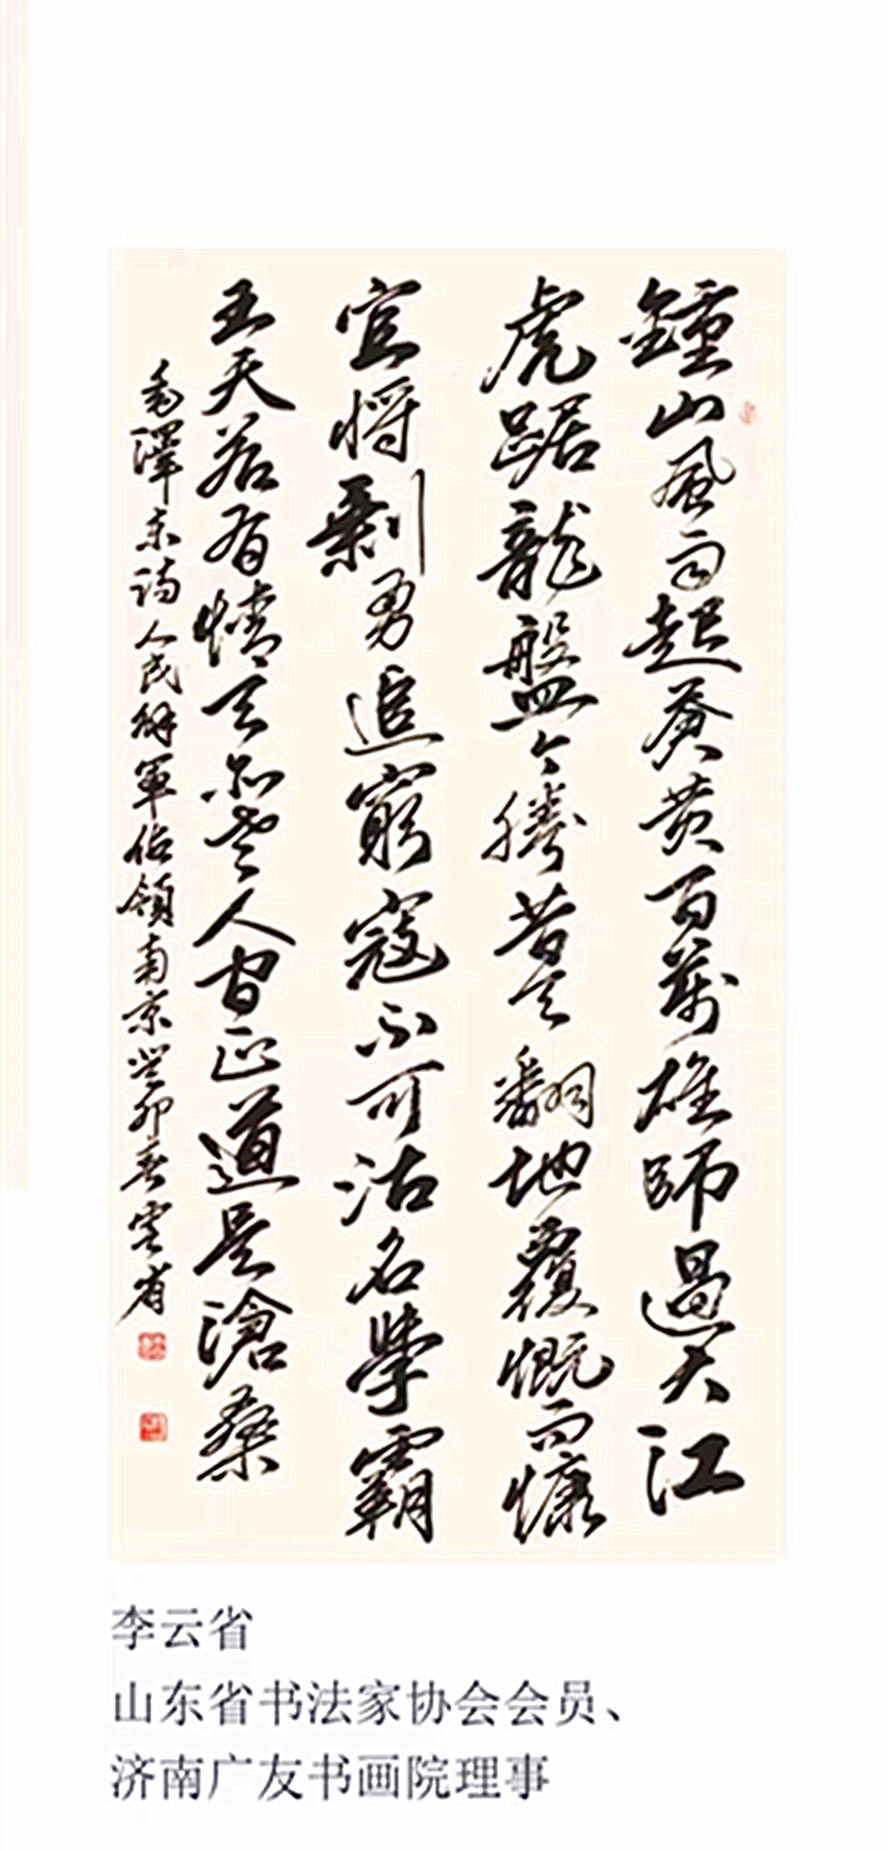 鍾山風雨起蒼黄百萬雄師過大江
虎踞龍盤今勝昔天翻地覆慨而慷
宜將剩勇追窮寇不可沽名學霸
王天若有情天亦老人间正道是滄桑
毛澤东詩人民解軍佔領南京癸卯春雲省
李云省
山东省书法家协会会员、
济南广友书画院理事